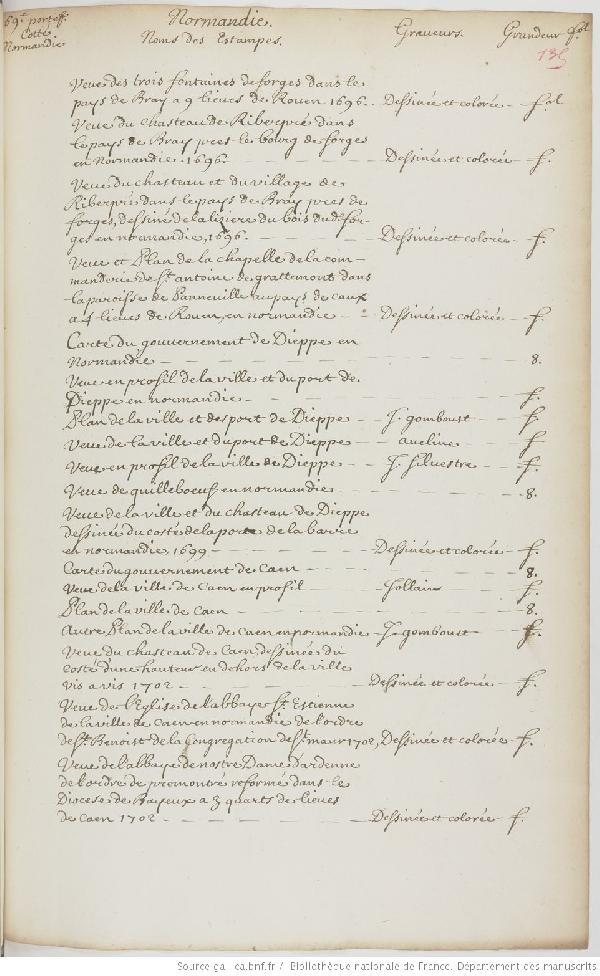 69e. porteff.
Cotté
Normandie
Normandie.
Noms des Estampes. Graveurs. Grandeur fol
135
Veue des trois fontaines de forges dans le
pays de Bray a 9 lieues de Rouen 1696. Dessinée et colorée - fol
Veue du Chasteau de Riberpré dans
le pays de Bray pres le bourg de forges
en Normandie. 1696. Dessinée et colorée f.
Veue du chasteau et du village de
Riberpré dans le pays de Bray pres de
forges, dessiné de la liziere du bois dud. for-
ges en normandie, 1696. Dessinée et colorée - f.
Veue et Plan de la chapelle de la com-
manderie de St. antoine de grattemont dans
la paroisse de Panneville au pays de caux
a 4 lieues de Rouen, en normandie - Dessinée et colorée - f.
Carte du gouvernement de Dieppe en
Normandie 8.
Veue en profil de la ville et du port de
Dieppe en normandie f.
Plan de la ville et des port de Dieppe - J. gomboust - f.
Veue de la ville et du port de Dieppe - aveline - f
Veue en profil de la ville de Dieppe - J. silvestre - f.
Veue de quilleboeuf en normandie 8.
Veue de la ville et du chasteau de Dieppe
dessinée du costé de la porte de la barre
en normandie 1699 - Dessinée et colorée - f.
Carte du gouvernement de Caen 8.
Veue de la ville de Caen en profil - Jollain - f.
Plan de la ville de Caen - 8.
Autre Plan de la ville de Caen en normandie - J. gomboust - f.
Veue du chasteau de Caen, dessinée du
costé d'une hauteur en dehors de la ville
vis a vis 1702 - Dessinée et colorée - f.
Veue de l'Eglise de l'abbaye St. Estienne
de la ville de Caen en normandie de l'ordre
de St. Benoist de la Congregation de St. maur 1702, Dessinée et colorée f.
Veue de l'abbaye de nostre Dame d'ardenne
de l'ordre de premontré reformé dans le
Diocese de Bayeux a 3 quarts de lieues
de Caen 1702 - Dessinée et colorée - f.
Source gallica.bnf.fr / Bibliothèque nationale de France. Département des manuscrits